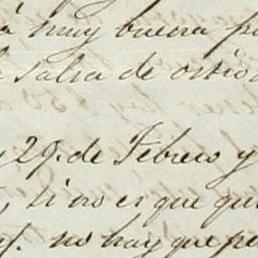 á muy buena p
a salsa de ostio
y 29. de Febrero y
, si no es que qu
no hay que pe